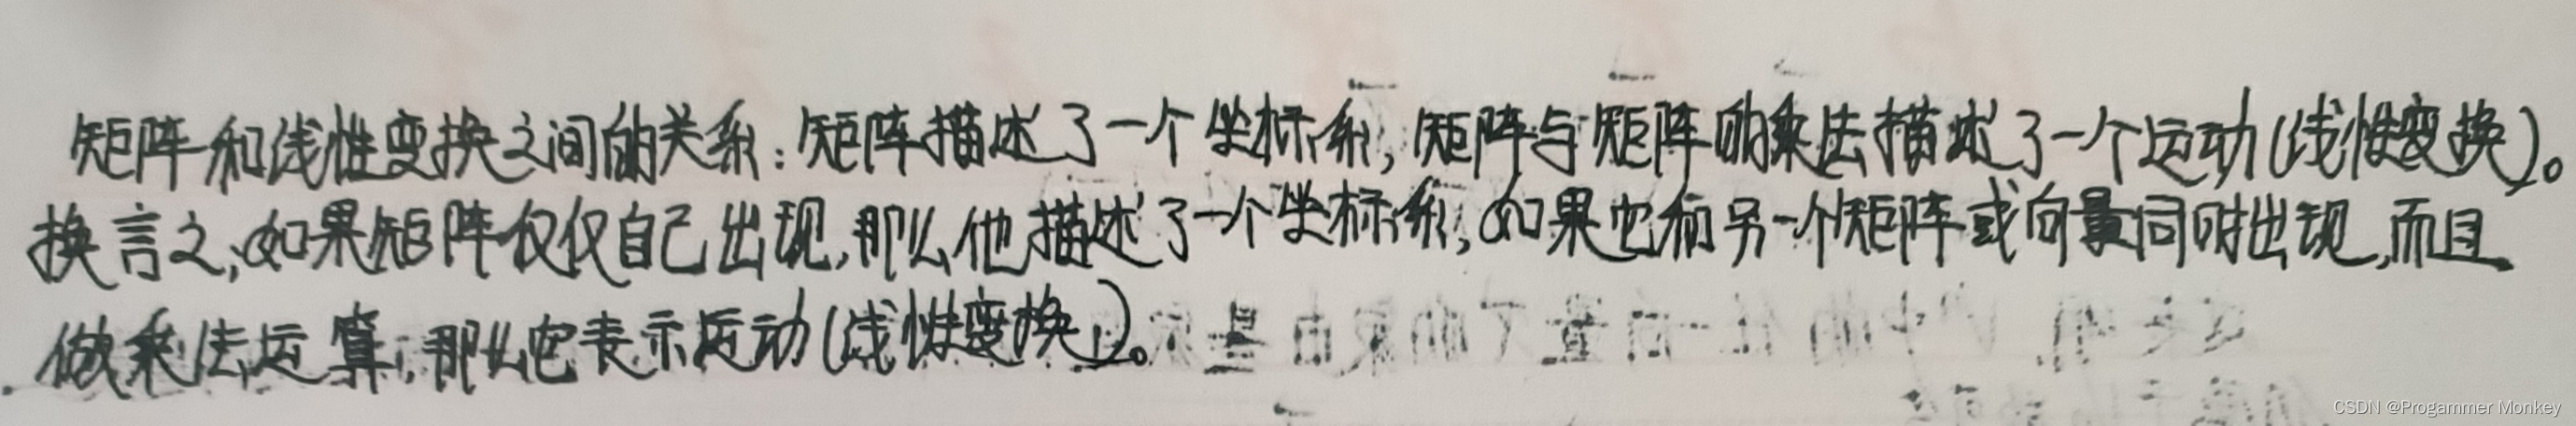 矩阵和线性变换之间的关系：矩阵描述了一个坐标系，矩阵与矩阵的乘法描述了一个运动(线性变换)。
换言之，如果矩阵仅仅自己出现，那么他描述了一个坐标系，如果它和另一个矩阵或向量同时出现，而且
做乘法运算，那么它表示运动(线性变换)。
CSDN @Progammer Monkey